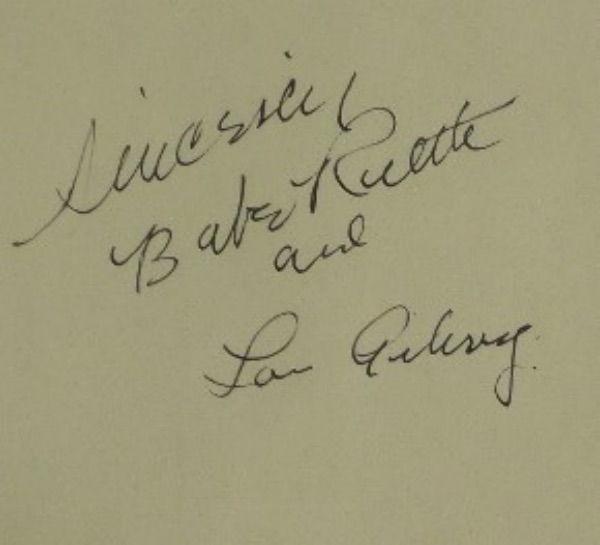 Sincerely
Babe Ruth
and
Lou Gehrig.